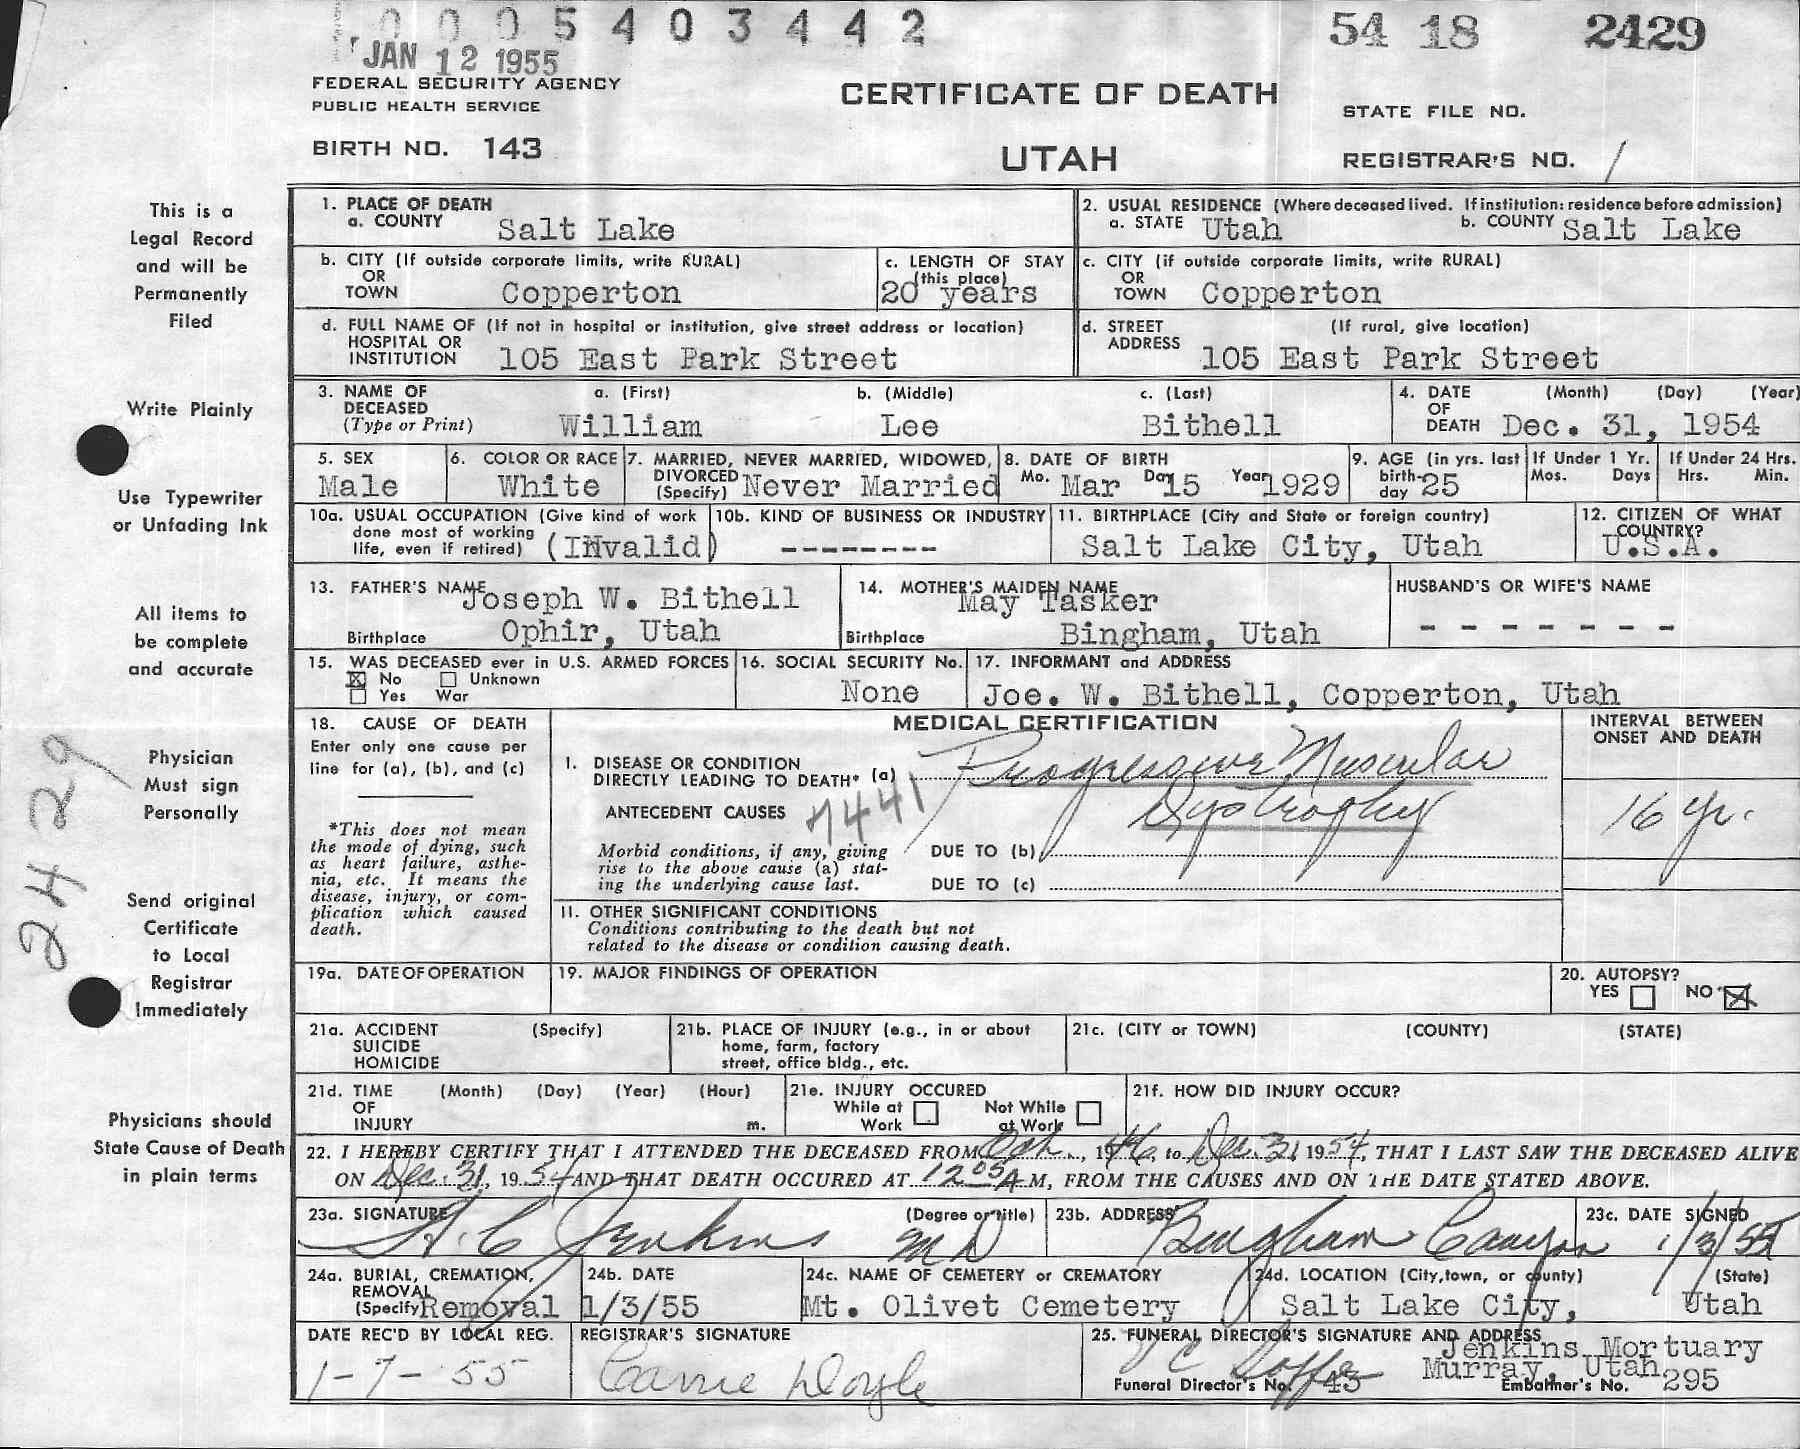 0005403442
54 18 2429
JAN 12 1955
FEDERAL SECURITY AGENCY
PUBLIC HEALTH SERVICE
CERTIFICATE OF DEATH
STATE FILE NO.
BIRTH NO. 143
UTAH
REGISTRAR'S NO. 1
This is a
Legal Record
and will be
Permanently
Filed
Write Plainly
Use Typewriter
or Unfading Ink
All items to
be complete
and accurate
Physician
Must sign
Personally
2429
Send original
Certificate
to Local
Registrar
Immediately
Physicians should
State Cause of Death
in plain terms
1. PLACE OF DEATH
a. COUNTY Salt Lake
2. USUAL RESIDENCE (Where deceased lived. If institution: residence before admission)
a. STATE Utah b. COUNTY Salt Lake
b. CITY (If outside corporate limits, write RURAL)
OR
TOWN Copperton
c. LENGTH OF STAY
(this place)
20 years
c. CITY (if outside corporate limits, write RURAL)
OR
TOWN Copperton
d. FULL NAME OF (If not in hospital or institution, give street address or location)
HOSPITAL OR
INSTITUTION 105 East Park Street
d. STREET (If rural, give location)
ADDRESS 105 East Park Street
3. NAME OF a. (First) b. (Middle) c. (Last)
DECEASED
(Type or Print) William Lee Bithell
4. DATE (Month) (Day) (Year)
OF
DEATH Dec. 31, 1954
5. SEX
Male
6. COLOR OR RACE
White
7. MARRIED, NEVER MARRIED, WIDOWED,
DIVORCED
(Specify) Never Married
8. DATE OF BIRTH
Mo. Mar Da 15 Year 1929
9. AGE (in yrs. last
birth-
day 25
If Under 1 Yr.
Mos. Days
If Under 24 Hrs.
Hrs. Min.
10a. USUAL OCCUPATION (Give kind of work
done most of working
life, even if retired) (INvalid)
10b. KIND OF BUSINESS OR INDUSTRY
--------
11. BIRTHPLACE (City and State or foreign country)
Salt Lake City, Utah
12. CITIZEN OF WHAT
COUNTRY?
U.S.A.
13. FATHER'S NAME Joseph W. Bithell
Birthplace Ophir, Utah
14. MOTHER'S MAIDEN NAME
May Tasker
Birthplace Bingham, Utah
HUSBAND'S OR WIFE'S NAME
- - - - - - -
15. WAS DECEASED ever in U.S. ARMED FORCES
X No Unknown
Yes War
16. SOCIAL SECURITY No.
None
17. INFORMANT and ADDRESS
Joe. W. Bithell, Copperton, Utah
18. CAUSE OF DEATH
Enter only one cause per
line for (a), (b), and (c)
*This does not mean
the mode of dying, such
as heart failure, asthe-
nia, etc. It means the
disease, injury, or com-
plication which caused
death.
MEDICAL CERTIFICATION
I. DISEASE OR CONDITION
DIRECTLY LEADING TO DEATH* (a) Progressive Muscular
Dystrophy
ANTECEDENT CAUSES 7441
Morbid conditions, if any, giving
rise to the above cause (a) stat-
ing the underlying cause last.
DUE TO (b)
DUE TO (c)
INTERVAL BETWEEN
ONSET AND DEATH
16 yr.
II. OTHER SIGNIFICANT CONDITIONS
Conditions contributing to the death but not
related to the disease or condition causing death.
19a. DATE OF OPERATION
19. MAJOR FINDINGS OF OPERATION
20. AUTOPSY?
YES NO X
21a. ACCIDENT (Specify)
SUICIDE
HOMICIDE
21b. PLACE OF INJURY (e.g., in or about
home, farm, factory
street, office bldg., etc.
21c. (CITY or TOWN) (COUNTY) (STATE)
21d. TIME (Month) (Day) (Year) (Hour)
OF
INJURY m.
21e. INJURY OCCURED
While at Not While
Work at Work
21f. HOW DID INJURY OCCUR?
22. I HEREBY CERTIFY THAT I ATTENDED THE DECEASED FROM , 1946, to Dec. 31, 1954, THAT I LAST SAW THE DECEASED ALIVE
ON Dec. 31, 1954 AND THAT DEATH OCCURED AT 12 05 A M, FROM THE CAUSES AND ON THE DATE STATED ABOVE.
23a. SIGNATURE (Degree or title)
H. C. Jenkins M D
23b. ADDRESS
Bingham Canyon
23c. DATE SIGNED
1/3/55
24a. BURIAL, CREMATION,
REMOVAL
(Specify Removal
24b. DATE
1/3/55
24c. NAME OF CEMETERY or CREMATORY
Mt. Olivet Cemetery
24d. LOCATION (City, town, or county) (State)
Salt Lake City, Utah
DATE REC'D BY LOCAL REG.
1-7-55
REGISTRAR'S SIGNATURE
Carrie Doyle
25. FUNERAL DIRECTOR'S SIGNATURE AND ADDRESS
Jenkins Mortuary
Murray, Utah
Funeral Director's No. 43 Embalmer's No. 295